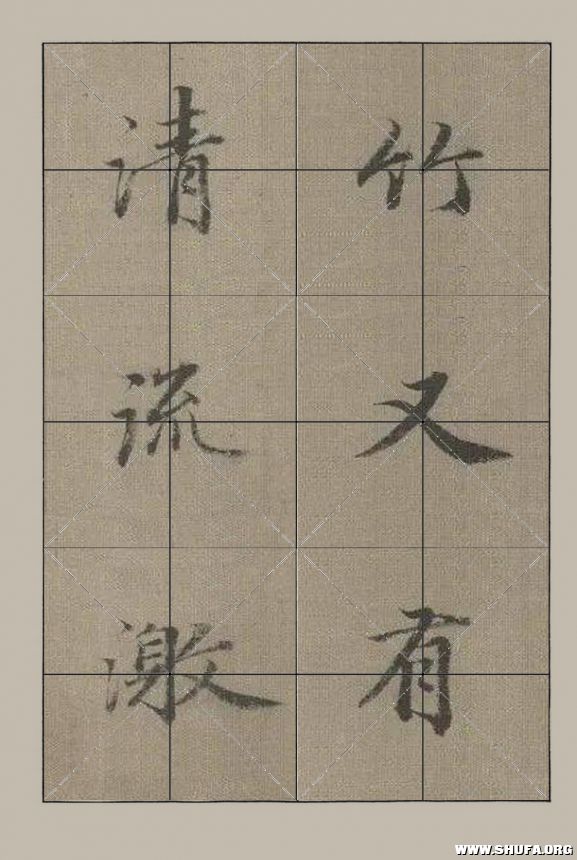 竹又有
清流激
WWW.SHUFA.ORG